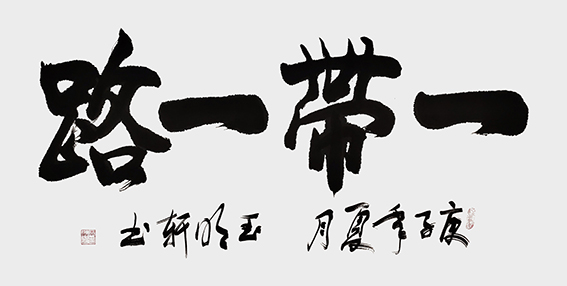 一帶一路
庚子年夏月 玉明轩书